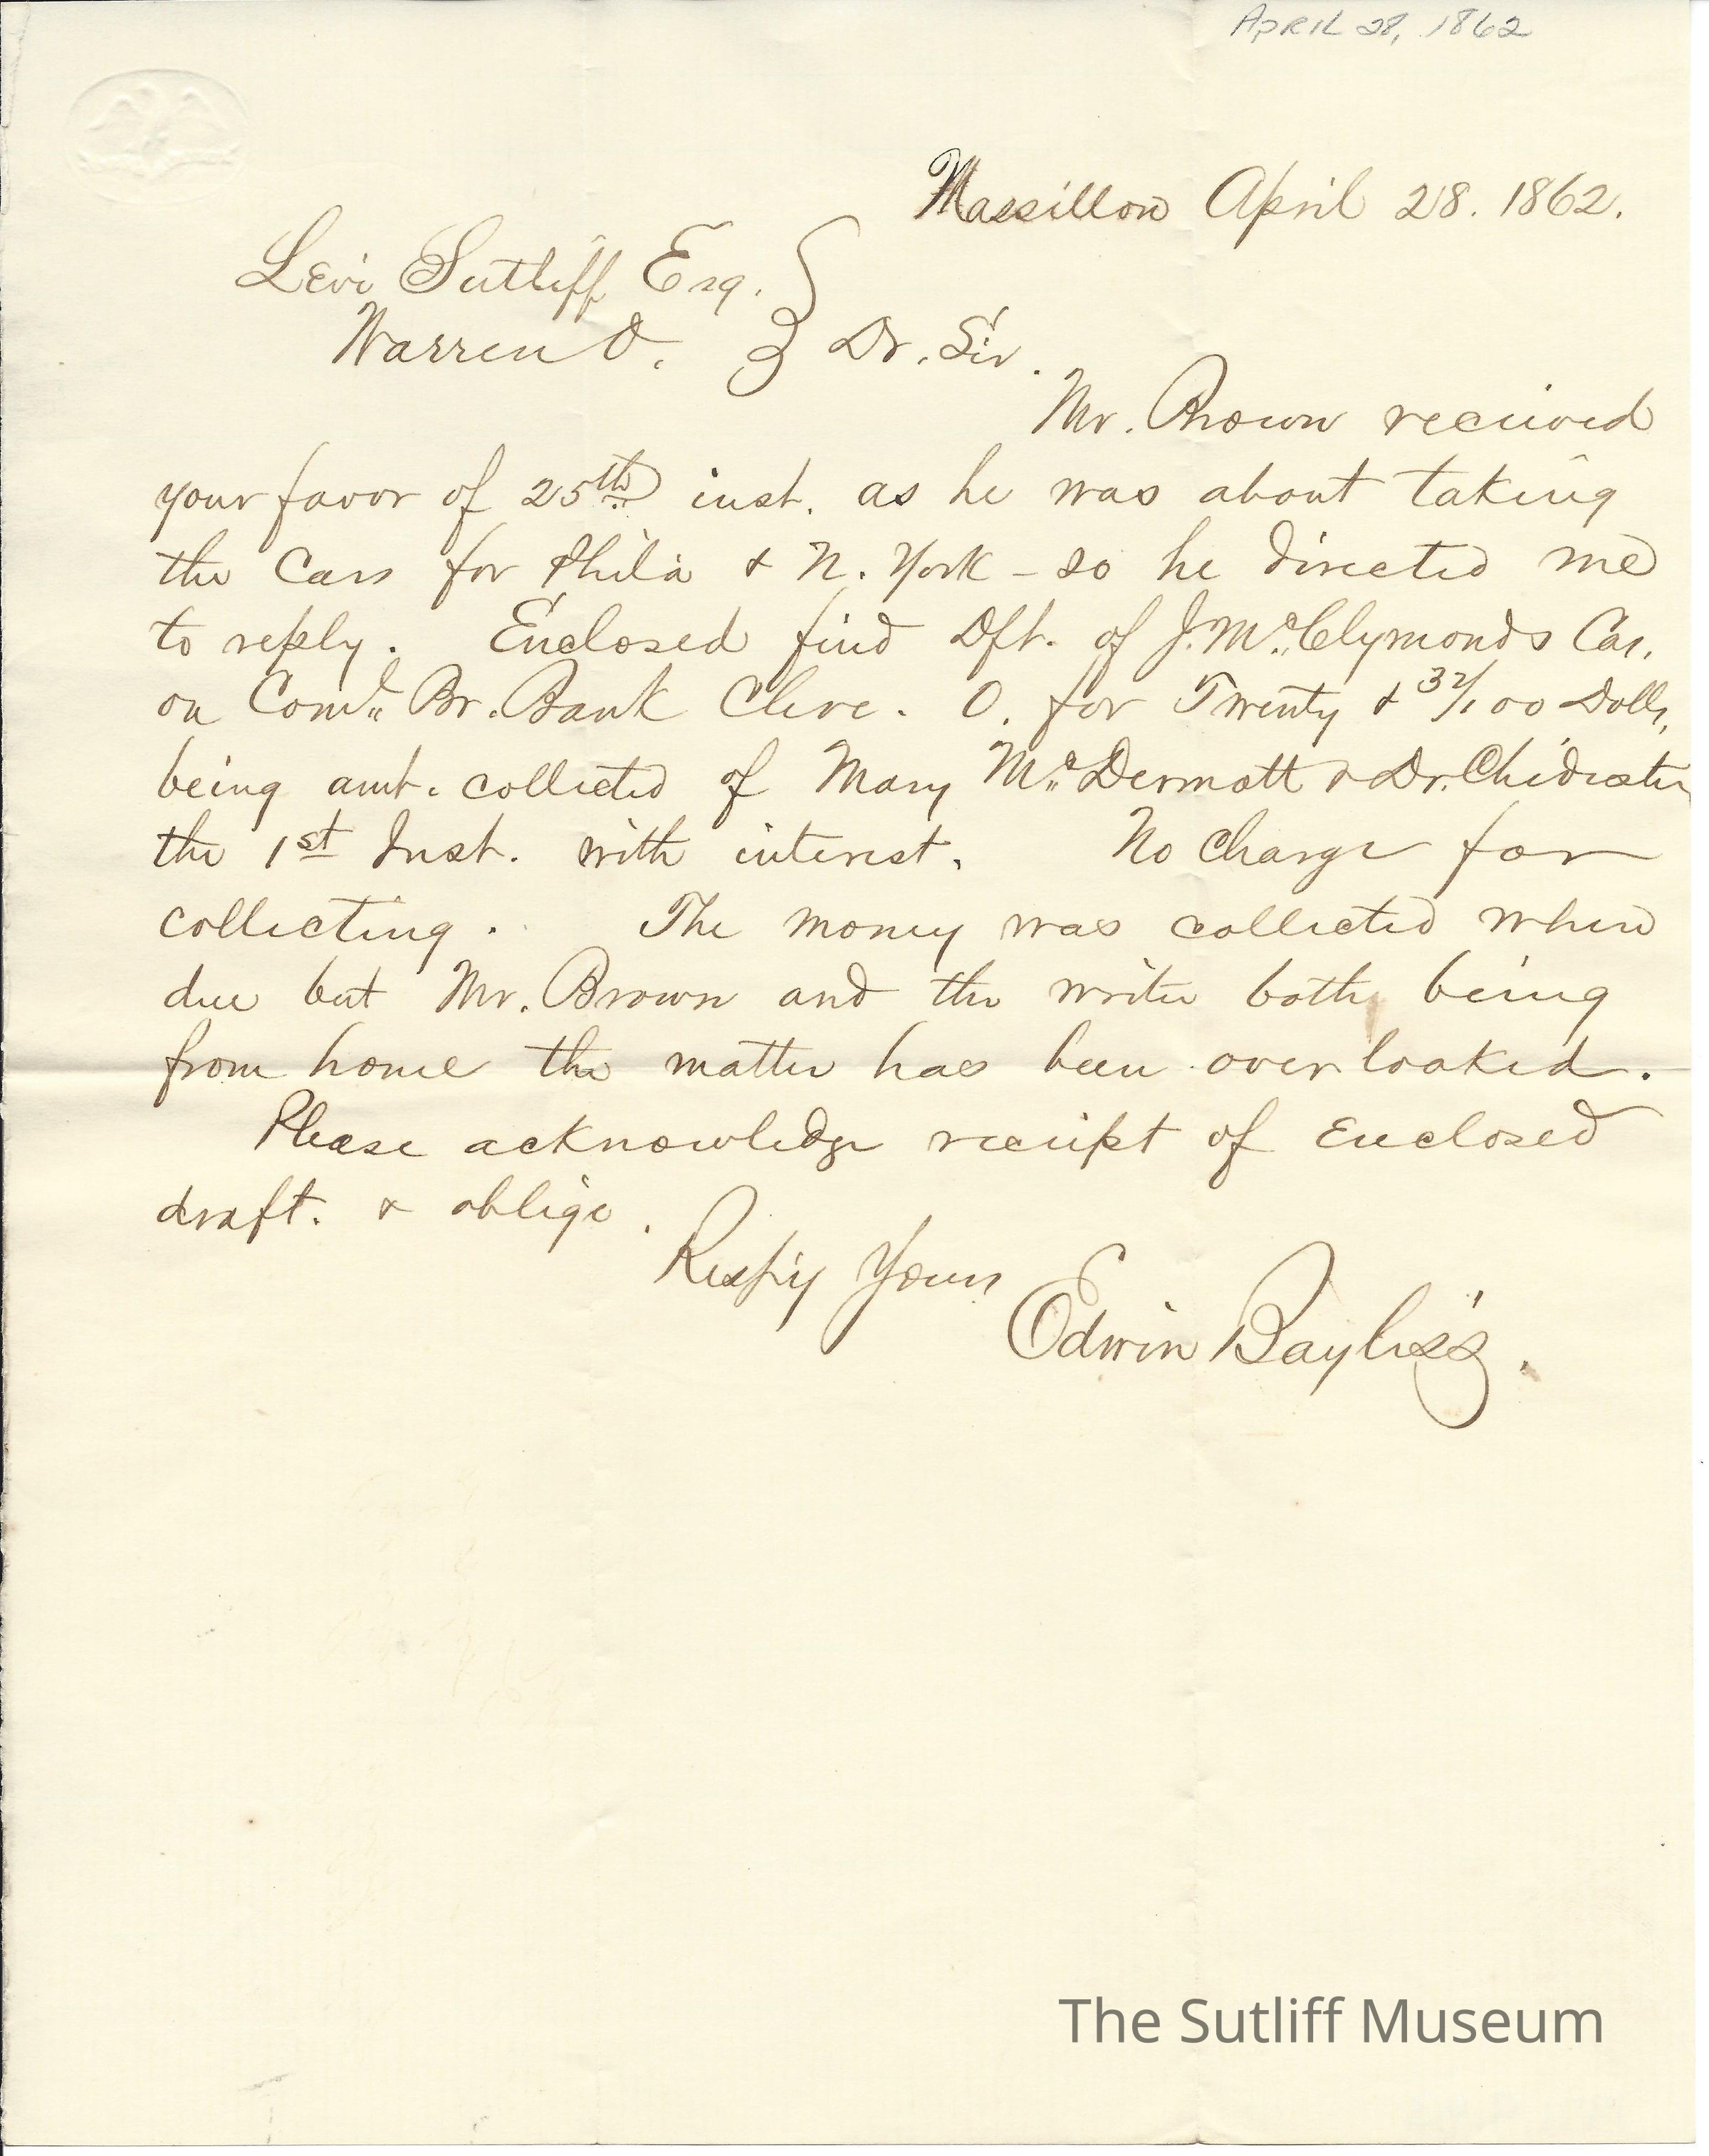 APRIL 28, 1862
Massillon April 28. 1862.
Levi Sutliff Esq.
Warren O. } Dr. Sir.
Mr. Brown received
your favor of 25th inst. as he was about taking
the Cars for Phila & N. York - so he directed me
to reply. Enclosed find Dft. of J. McClymonds Cas.
on Coml. Br. Bank Cleve. O. for Twenty & 32/100 Dolls,
being amt. collected of Mary McDermott & Dr. Chidester
the 1st Inst. with interest. No charge for
collecting. The money was collected when
due but Mr. Brown and the writer both being
from home the matter has been overlooked.
Please acknowledge receipt of Enclosed
draft. & oblige.
Respy Yours
Edwin Bayliss.
The Sutliff Museum